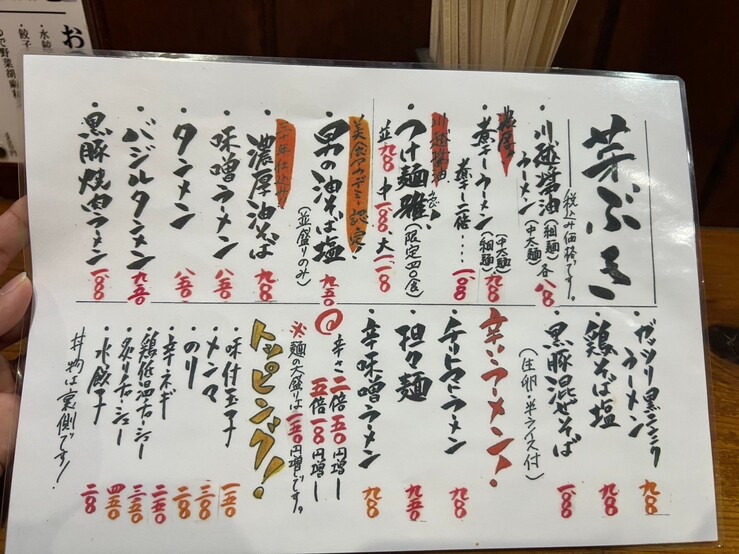 芽ぶき
(税込み価格です。)
・川越醤油ラーメン
(粗麺)
(中太麺)
各八〇〇
濃厚!
・煮干しラーメン
(中太麺)
(粗麺)
九〇〇
煮干し二倍・・・・一、〇〇〇
川越醤油
・つけ麺雅、
(限定四〇食)
並九〇〇 中一、〇〇〇、大一、一〇〇
美食アカデミー認定!
・男の油そば塩
(並盛りのみ)
九五〇
三十年仕込み!
・濃厚油そば
九〇〇
・味噌ラーメン
八五〇
・タンメン
八五〇
・バジルタンメン
九五〇
・黒豚焼肉ラーメン
一、〇〇〇
・ガッツリ黒ニンニクラーメン
九〇〇
・鶏そば塩
九〇〇
・黒豚混ぜそば
(生卵・半ライス付)
一、〇〇〇
辛いラーメン!
九〇〇
・担々麺
九五〇
・辛味噌ラーメン
九〇〇
辛さ二倍五〇円増し
五倍一〇〇円増し
※麺の大盛りは一五〇円増です。
トッピング!
・味付玉子
一五〇
・メンマ
三〇〇
・のり
二〇〇
・辛ネギ
二五〇
・鶏低温チャーシュー
三五〇
・炙りチャーシュー
四五〇
・水餃子
二〇〇
丼物は裏側です!